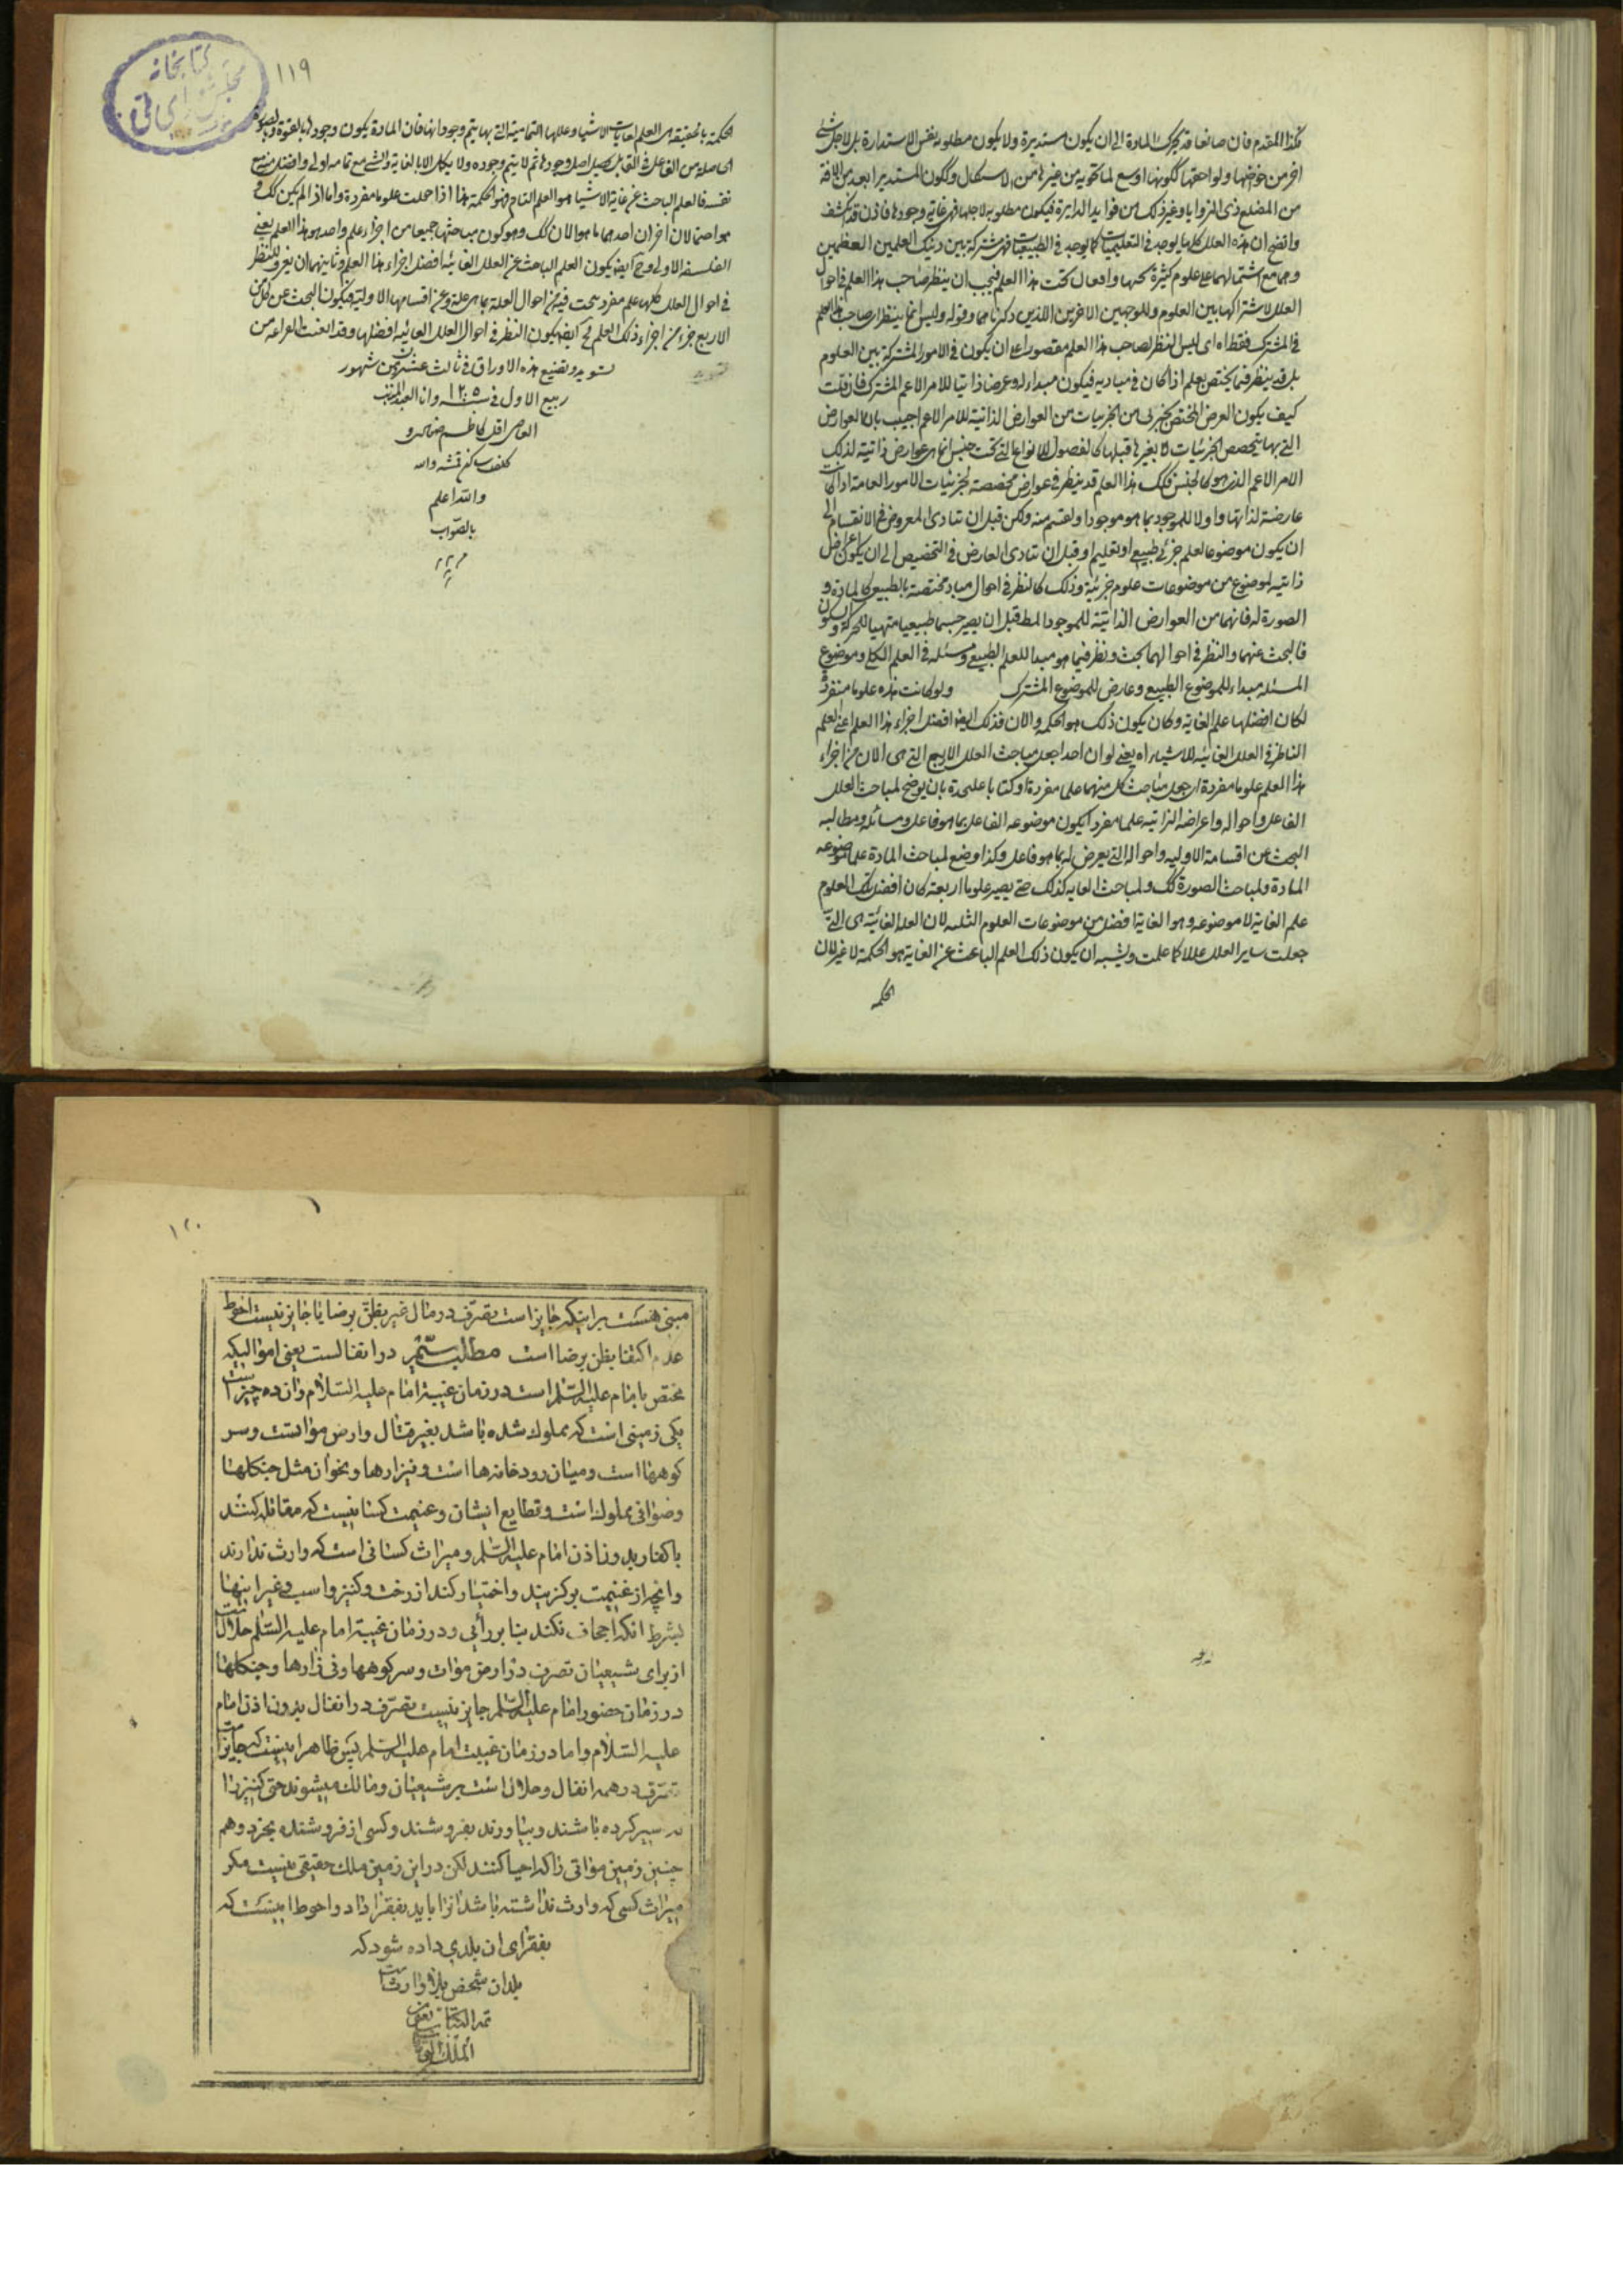 هذا المقدم فان صانعا قد يحرك المادة الى ان يكون مستديرة ولا يكون مطلوبه نفس الاستدارة بل لاجل شئ
اخر من خواصها ولواحقها ككونها اوسع لما تحويه من غيرها من الاشكال وككون المستدير ابعد من الافة
من المضلع ذى الزوايا وغير ذلك من فوايد الدايرة فيكون مطلوبه لاجلها فهى غاية وجودها فاذن قد انكشف
واتضح ان هذه العلل كلها يوجد فى التعليميات كما يوجد فى الطبيعيات فهى مشتركة بين ذينك العلمين العظيمين
وهما مع اشتمالهما على علوم كثيرة تحتهما واقعان تحت هذا العلم فيجب ان ينظر صاحب هذا العلم فى احوال
العلل لاشتراكها بين العلوم وللوجهين الاخرين اللذين ذكرناهما وقوله وليس انما ينظر صاحب هذا العلم
فى المشترك فقط اه اى ليس النظر لصاحب هذا العلم مقصورا على ان يكون فى الامور المشتركة بين العلوم
بل قد ينظر فيما يختص بعلم اذا كان فى مباديه فيكون مبداء له وعرضا ذاتيا للامر الاعم المشترك فان قلت
كيف يكون العرض المختص بجزئى من الجزئيات من العوارض الذاتية للامر الاعم اجيب بان العوارض
التى بها يتخصص الجزئيات لا بغيرها قبلها كالفصول للانواع التى تحت جنس انما هى عوارض ذاتية لذلك
الامر الاعم الذى هو كالجنس فكك هذا العلم قد ينظر فى عوارض مخصصة لجزئيات الامور العامة اذا كانت
عارضة لذاتها واولا للموجود بما هو موجود او لقسم منه ولكن قبل ان تتادى المعروض فى الانقسام الى
ان يكون موضوعا لعلم جزئى طبيعى او تعليمى او قبل ان تتادى العارض فى التخصيص الى ان يكون اعراض
ذاتيه لموضوع من موضوعات علوم جزئية وذلك كالنظر فى احوال مباد مختصة بالطبيعى كالمادة و
الصورة له فانهما من العوارض الذاتية للموجود المط قبل ان يصير جسما طبيعيا متهيا للحركة والسكون
فالبحث عنهما والنظر فى احوالهما بحث ونظر فيما هو مبدا للعلم الطبيعى ومسئله فى العلم الكلى وموضوع
المسئله مبداء للموضوع الطبيعى وعارض للموضوع المشترك ولو كانت هذه علوما منفردة
لكان افضلها علم الغاية وكان يكون ذلك هو الحكمه والان فذلك ايضا افضل اجزاء هذا العلم اعنى العلم
الناظر فى العلل الغائيه للاشياء اه يعنى لو ان احدا جعل مباحث العلل الاربع التى هى الان من اجزاء
هذا العلم علوما مفردة اى جعل مباحث كل منهما علما مفردة او كتابا عليحدة بان يوضع لمباحث العلل
الفاعل واحواله واعراضه الذاتيه علما مفردا يكون موضوعه الفاعل بما هو فاعل ومسائله ومطالبه
البحث عن اقسامه الاوليه واحواله التى يعرض له بما هو فاعل وكذا وضع لمباحث المادة علما موضوعه
المادة ولمباحث الصورة كك ولمباحث الغايه كذلك حتى يصير علوما اربعة كان افضل تلك العلوم
علم الغاية لان موضوعه وهو الغاية افضل من موضوعات العلوم الثلثه لان العلة الغائية هى التى
جعلت ساير العلل عللا كما علمت ويشبه ان يكون ذلك العلم الباحث عن الغاية هو الحكمة لا غير لان
الحكمه
كتابخانه
مجلس شورای ملی
۱۱۹
الحكمة بالحقيقة هى العلم بغايات الاشياء وعللها التمامية التى بها يتم وجوداتها فان المادة يكون وجودها بالقوة وبالصورة
الحاصلة من الفاعل فى القابل يحصل اصل وجودها ثم لا يتم وجوده ولا يكمل الا بالغاية والشئ مع تمامه اولى وافضل منه مع
نفسه فالعلم الباحث عن غاية الاشياء هو العلم التام فهو الحكمة هذا اذا جعلت علوما مفردة واما اذا لم يكن كك و
هو احتمالان اخران احدهما ما هو الان كك وهو كون مباحثها جميعا من اجزاء علم واحد هو هذا العلم يعنى
الفلسفه الاولى وح ايضا يكون العلم الباحث عن العلل الغائيه افضل اجزاء هذا العلم وثانيهما ان يفرد للنظر
فى احوال العلل كلها علم مفرد يبحث فيه من احوال العلة بما هى علة وعن اقسامها الاولية فيكون البحث عن كل من
الاربع جزء من اجزاء ذلك العلم فح ايضا يكون النظر فى احوال العلل الغائيه افضلها وقد اتفقت الفراغه من
تسويد وتضيع هذه الاوراق فى ثالث عشرين من شهور
ربيع الاول فى سنه ۱۲۰۵ وانا العبد المذنب
العاصى اقل كاظم
والله اعلم
بالصواب
۱۲۰
۱
مبنى هست براينكه جايز است تصرف در مال غير بظن برضا يا جايز نيست احوط
عدم اكتفا بظن برضا است مطلب ششم در انفالست يعنى اموالیکه
مختص بامام عليه السلام است در زمان غيبة امام عليه السلام وان ده چيز است
يكى زمينى است كه مملوك شده باشد بغير قتال وارض مواتست وسر
كوهها است وميان رودخانه ها است ونيزارها ونحوان مثل جنكلها
وصوافى مملوك است وقطايع ايشان وغنيمت كسانيست كه مقاتله كنند
با كفار بدون اذن امام عليه السلام وميراث كسانى است كه وارث ندارند
وانچه از غنيمت بركزيند واختيار كند از رخت وكنيز واسب وغير اينها
بشرط انكه اجحاف نكند بنا بر رأيى ودر زمان غيبة امام عليه السلام حلال است
از براى شيعيان تصرف در ارض موات وسركوهها ونى زارها وجنكلها
در زمان حضور امام عليه السلام جايز نيست تصرف در انفال بدون اذن امام
عليه السلام واما در زمان غيبت امام عليه السلام پس ظاهر اينست كه جايز است
تصرف در همه انفال وحلال است بر شيعيان ومالك ميشوند حتى كنيز را
كه اسير كرده باشند وبياورند بفروشند وكسى از فروشنده بخرد وهم
چنين زمين مواتى را كه احيا كنند لكن در اين زمين ملك حقيقى نيست مكر
ميراث كسى كه وارث نداشته باشد انرا بايد بفقرا داد واحوط اينست كه
بفقراى ان بلدى داده شود كه
بلد ان شخص بلا وارث است
تمه الكتاب بعون
الملك الوهاب